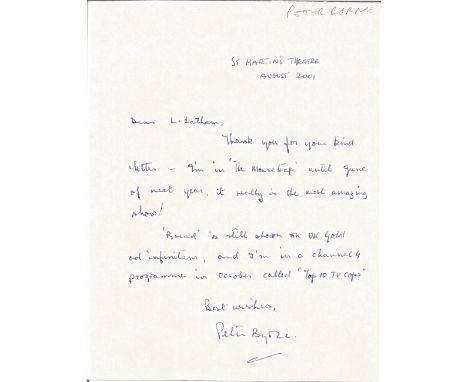 PETER BYRNE
ST MARTIN'S THEATRE
AUGUST 2001
Dear L. Latham,
Thank you for your kind
letter – I'm in 'The Mousetrap' until June
of next year, it really is the most amazing
show!
'Bread' is still shown on UK Gold
ad infinitum, and I'm in a channel 4
programme in October called 'Top 10 TV Cops'
Best wishes,
Peter Byrne.